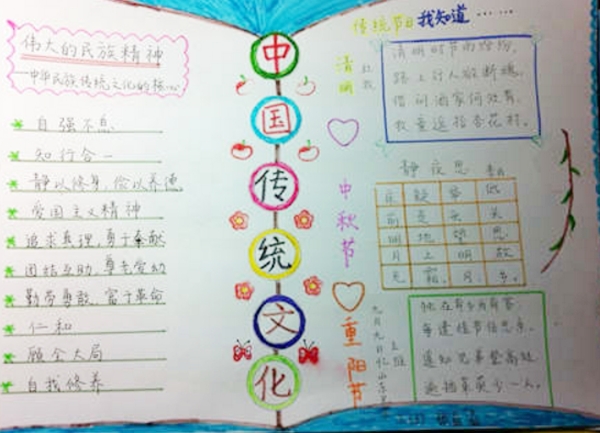 伟大的民族精神
—中华民族传统文化的核心
自强不息
知行合一
静以修身,俭以养德
爱国主义精神
追求真理,勇于奉献
团结互助,尊老爱幼
勤劳勇敢,富于革命
仁和
顾全大局
自我修养
中
国
传
统
文
化
传统节日我知道……
清明
杜牧
清明时节雨纷纷,
路上行人欲断魂。
借问酒家何处有,
牧童遥指杏花村。
中秋节
静夜思
李白
床 疑 举 低
前 是 头 头
明 地 望 思
月 上 明 故
光 霜。 月, 乡。
重阳节
九月九日忆山东
王维
独在异乡为异客,
每逢佳节倍思亲。
遥知兄弟登高处,
遍插茱萸少一人。